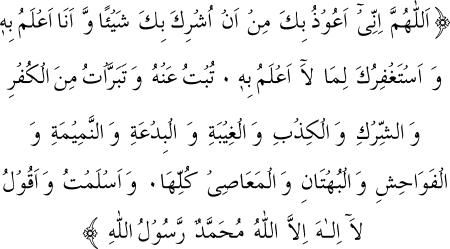 ﴿اَللّٰهُمَّ اِنِّیْٓ اَعُوْذُ بِكَ مِنْ اَنْ اُشْرِكَ بِكَ شَیْـًٔا وَّ اَنَا اَعْلَمُ بِهٖ
وَ اَسْتَغْفِرُكَ لِمَا لَآ اَعْلَمُ بِهٖ ۰ تُبْتُ عَنْهُ وَ تَبَرَّاْتُ مِنَ الْكُفْرِ
وَ الشِّرْكِ وَ الْكِذْبِ وَ الْغِیْبَةِ وَ الْبِدْعَةِ وَ النَّمِیْمَةِ وَ
الْفَوَاحِشِ وَ الْبُهْتَانِ وَ الْمَعَاصِیْ كُلِّهَا ۰ وَ اَسْلَمْتُ وَ اَقُوْلُ
لَآ اِلٰهَ اِلَّا اللّٰهُ مُحَمَّدٌ رَّسُوْلُ اللّٰهِ ﴾